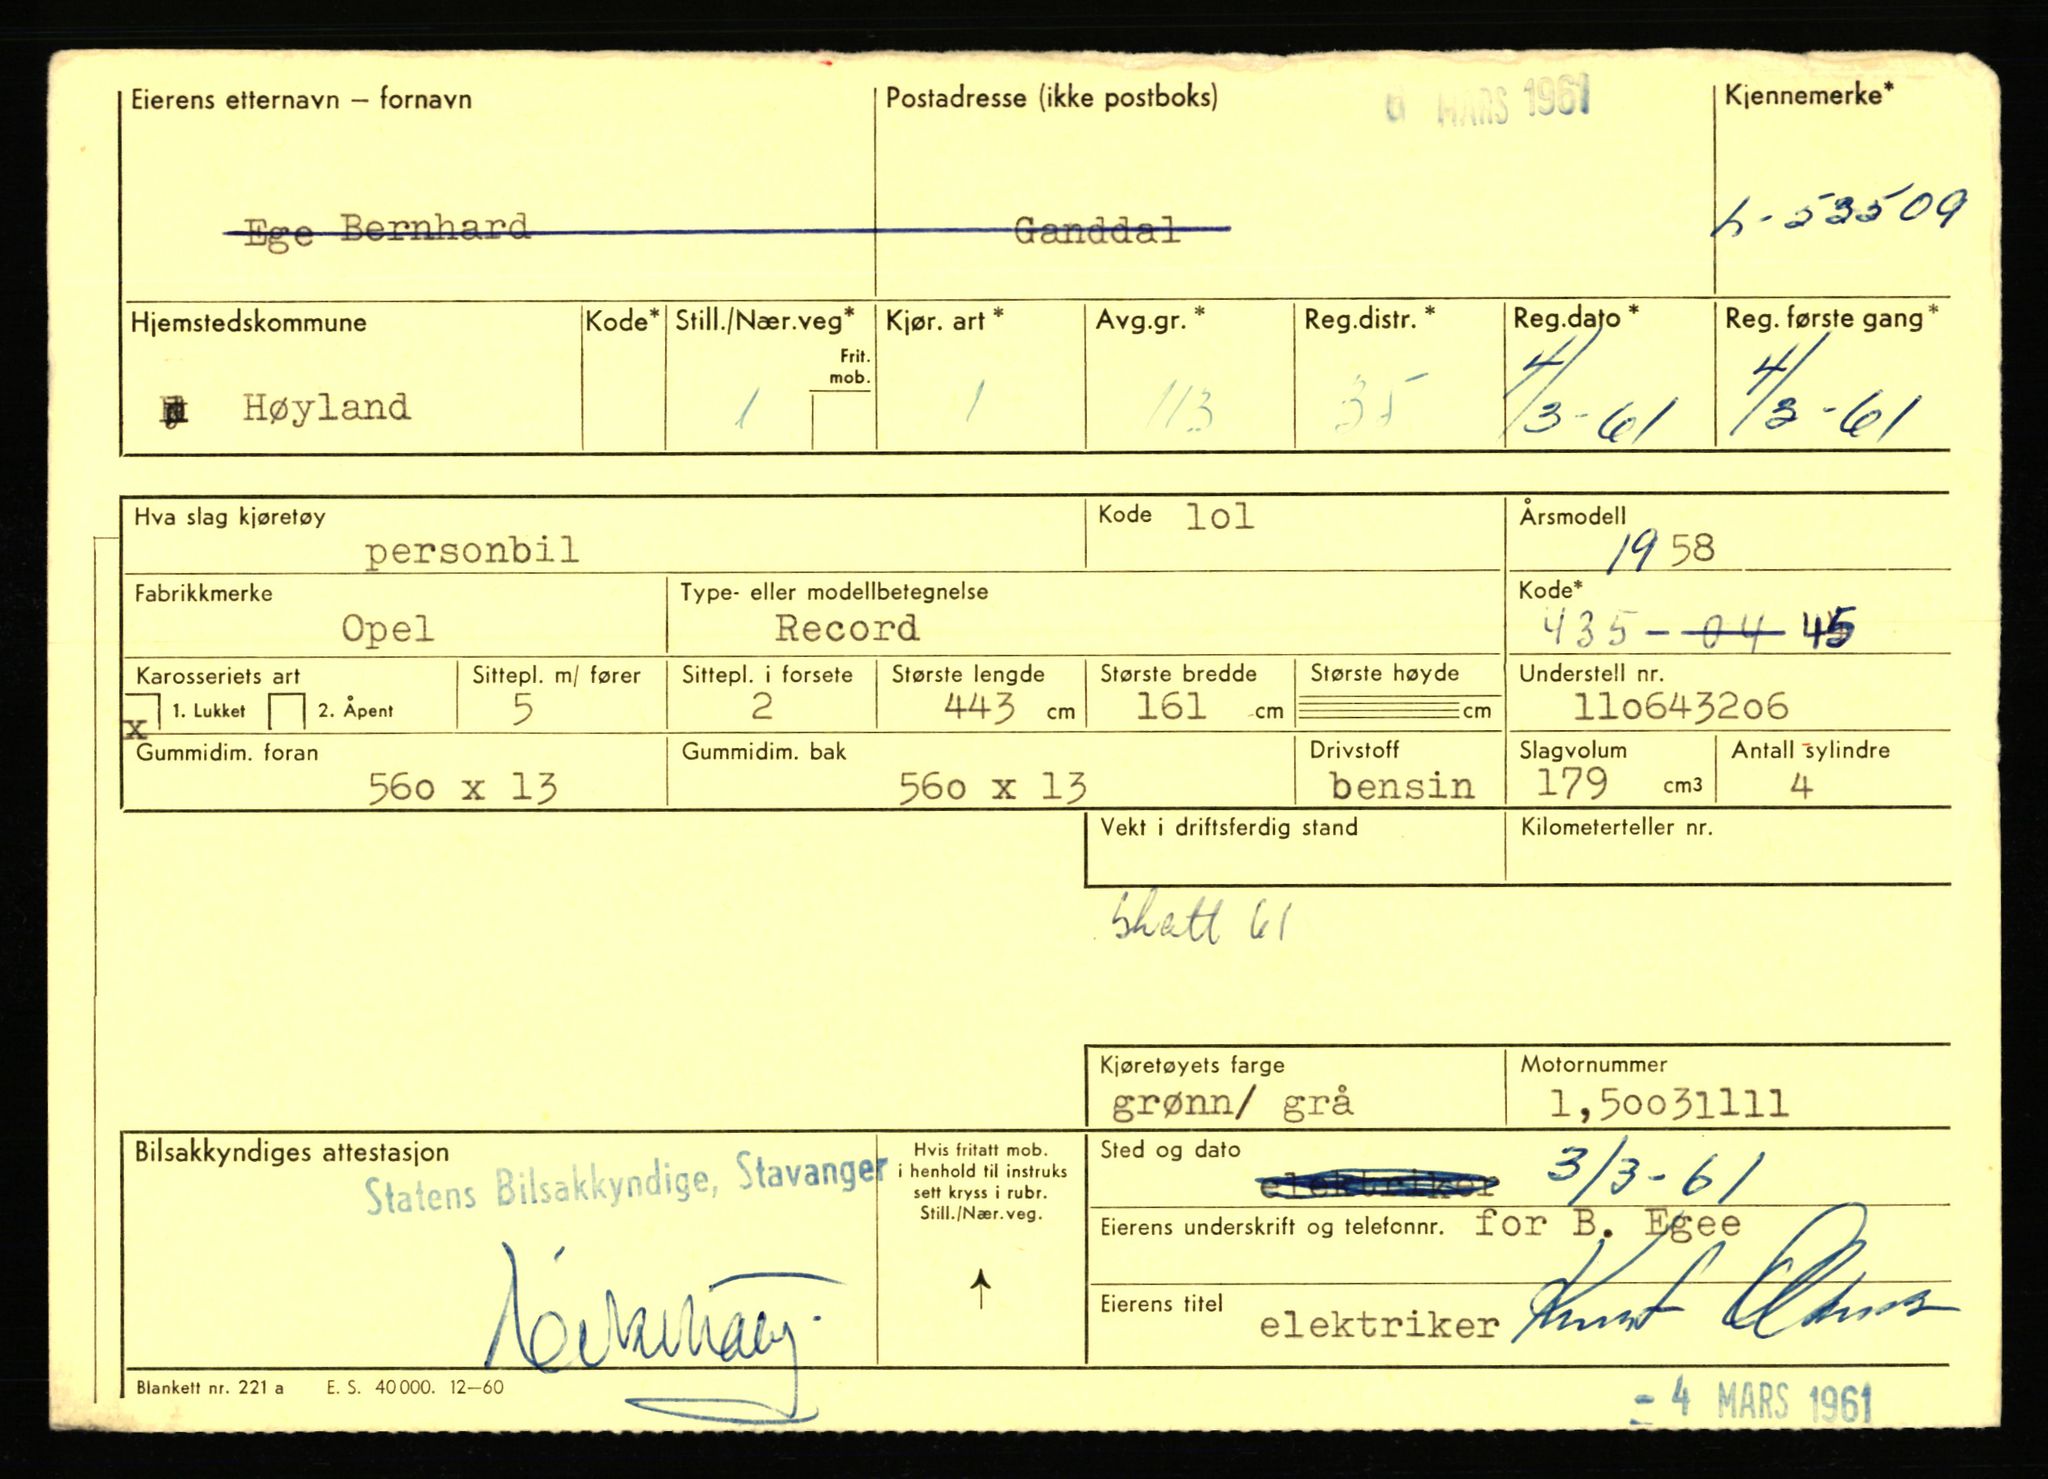 Eierens etternavn – fornavn
Postadresse (ikke postboks)
6 MARS 1961
Kjennemerke*
Ege Bernhard
Ganddal
L-53509
Hjemstedskommune
Kode*
Still./Nær.veg*
Frit.
mob.
Kjør. art *
Avg.gr. *
Reg.distr. *
Reg.dato *
Reg. første gang*
Høyland
1
1
113
35
4/3-61
4/3-61
Hva slag kjøretøy
personbil
Kode lol
Årsmodell
1958
Fabrikkmerke
Opel
Type- eller modellbetegnelse
Record
Kode*
435 - 04 45
Karosseriets art
x 1. Lukket 2. Åpent
Sittepl. m/ fører
5
Sittepl. i forsete
2
Største lengde
443 cm
Største bredde
161 cm
Største høyde
cm
Understell nr.
11o6432o6
Gummidim. foran
56o x 13
Gummidim. bak
56o x 13
Drivstoff
bensin
Slagvolum
179 cm3
Antall sylindre
4
Vekt i driftsferdig stand
Kilometerteller nr.
Skatt 61
Kjøretøyets farge
grønn/ grå
Motornummer
1,5oo31111
Bilsakkyndiges attestasjon
Statens Bilsakkyndige, Stavanger
Hvis fritatt mob.
i henhold til instruks
sett kryss i rubr.
Still./Nær.veg.
Sted og dato
elektriker 3/3-61
Eierens underskrift og telefonnr. for B. Egee
Eierens titel
elektriker
Blankett nr. 221 a E. S. 40 000. 12–60
- 4 MARS 1961